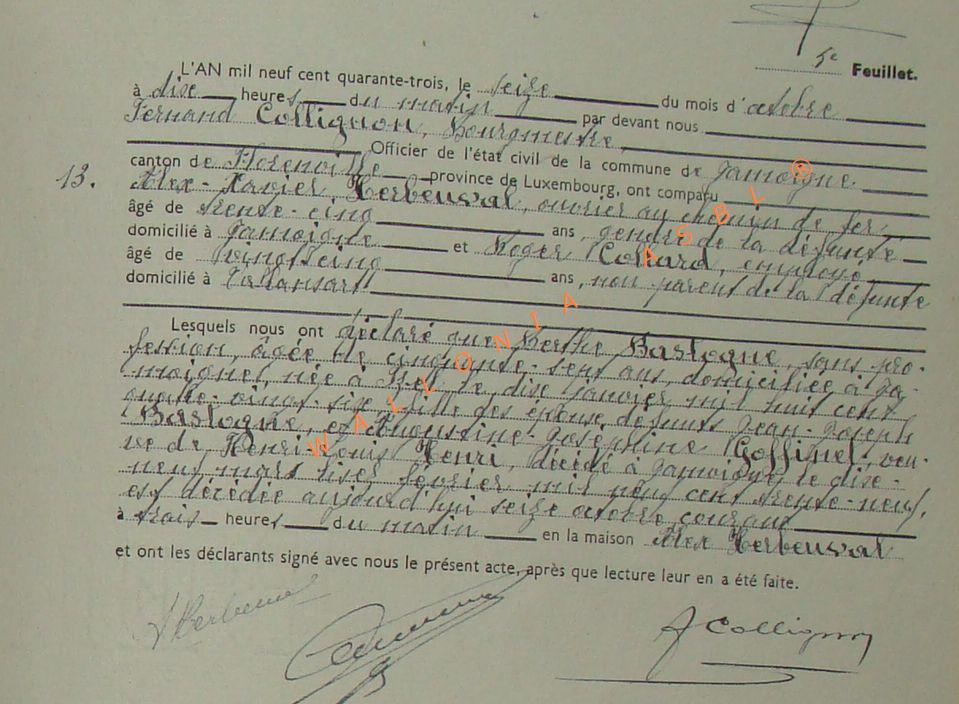 5e Feuillet.
L'AN mil neuf cent quarante-trois, le seize du mois d'octobre
à dix heures du matin par devant nous
Fernand Collignon, Bourgmestre,
Officier de l'état civil de la commune de Jamoigne
13.
canton de Florenville province de Luxembourg, ont comparu
Alex-Xavier Herbeuval, ouvrier au chemin de fer
âgé de trente-cinq ans, gendre de la défunte
domicilié à Jamoigne et Roger Collard, employé
âgé de vingt-cinq ans, non parent de la défunte
domicilié à
Lesquels nous ont déclaré que Berthe Bastogne, sans pro-
fession, âgée de cinquante-sept ans, domiciliée à Ja-
moigne, née à Izel, le dix janvier mil huit cent
quatre-vingt-six, fille des époux défunts Jean-Joseph
Bastogne, et Augustine-Joséphine Goffinet, veu-
ve de Henri-Louis Henri, décédé à Jamoigne, le dix-
neuf février mil neuf cent trente-neuf,
est décédée aujourd'hui seize octobre courant
à trois heures du matin en la maison Alex Herbeuval
et ont les déclarants signé avec nous le présent acte, après que lecture leur en a été faite.
A Herbeuval
F Collignon
WALLONIA ASBL ®